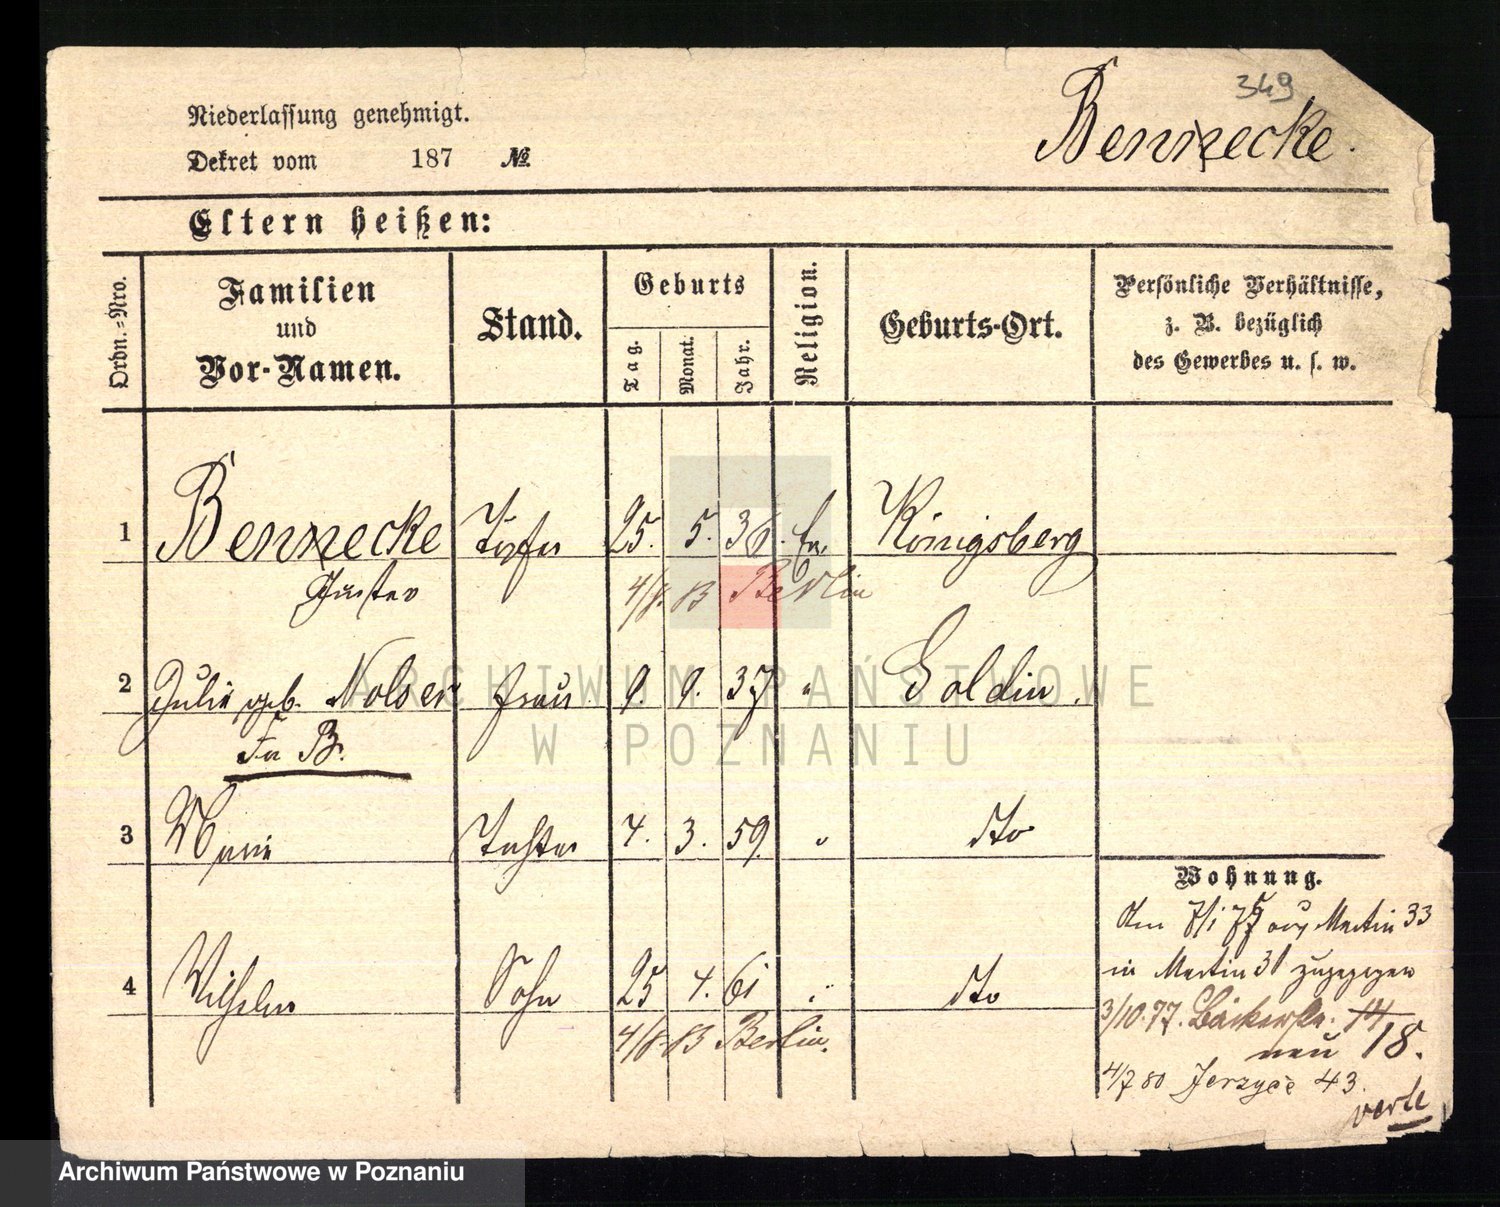 349
Bennecke.
Niederlassung genehmigt.
Dekret vom 187 №
Eltern heißen:
Ordn.=Nro.
Familien und Vor-Namen.
Stand.
Geburts
Tag.
Monat.
Jahr.
Religion.
Geburts-Ort.
Persönliche Verhältnisse, z. B. bezüglich des Gewerbes u. s. w.
1 Bennecke Töpfer 25. 5. 36. Ev. Königsberg
Gustav 4/8. B Berlin
2 Julie geb. Nolser Frau 9. 9. 37 " Soldin.
Fr B.
3 Marie Tochter 4. 3. 59. " dto
4 Wilhelm Sohn 25 4. 61 " dto
4/8. B Berlin.
Wohnung.
Am 7/1 75 aus Martin 33
in Martin 31 zugezogen
3/10. 77. Bäckerstr. 14
neu 18.
4/7 80 Jerzyce 43.
verte
ARCHIWUM PAŃSTWOWE
W POZNANIU
Archiwum Państwowe w Poznaniu